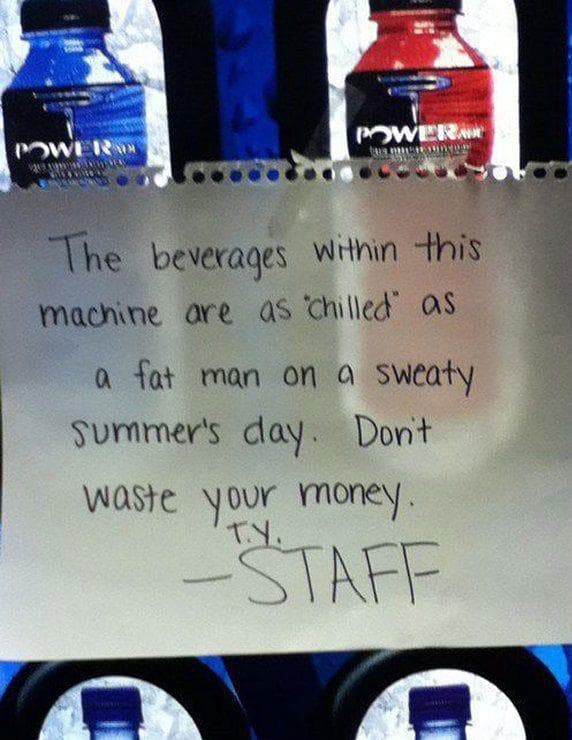 POWERADE
POWERADE
The beverages within this
machine are as "chilled" as
a fat man on a sweaty
summer's day. Don't
waste your money.
T.Y.
-STAFF